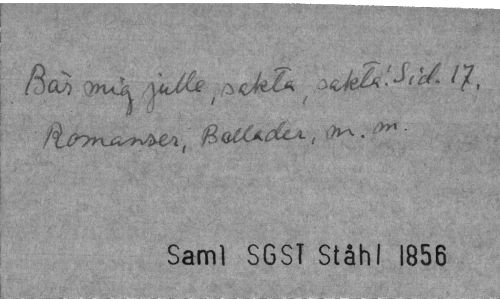 Bär mig julle, sakta, sakta! Sid. 17.
Romanser, Ballader, m. m.
Saml SGST Ståhl 1856